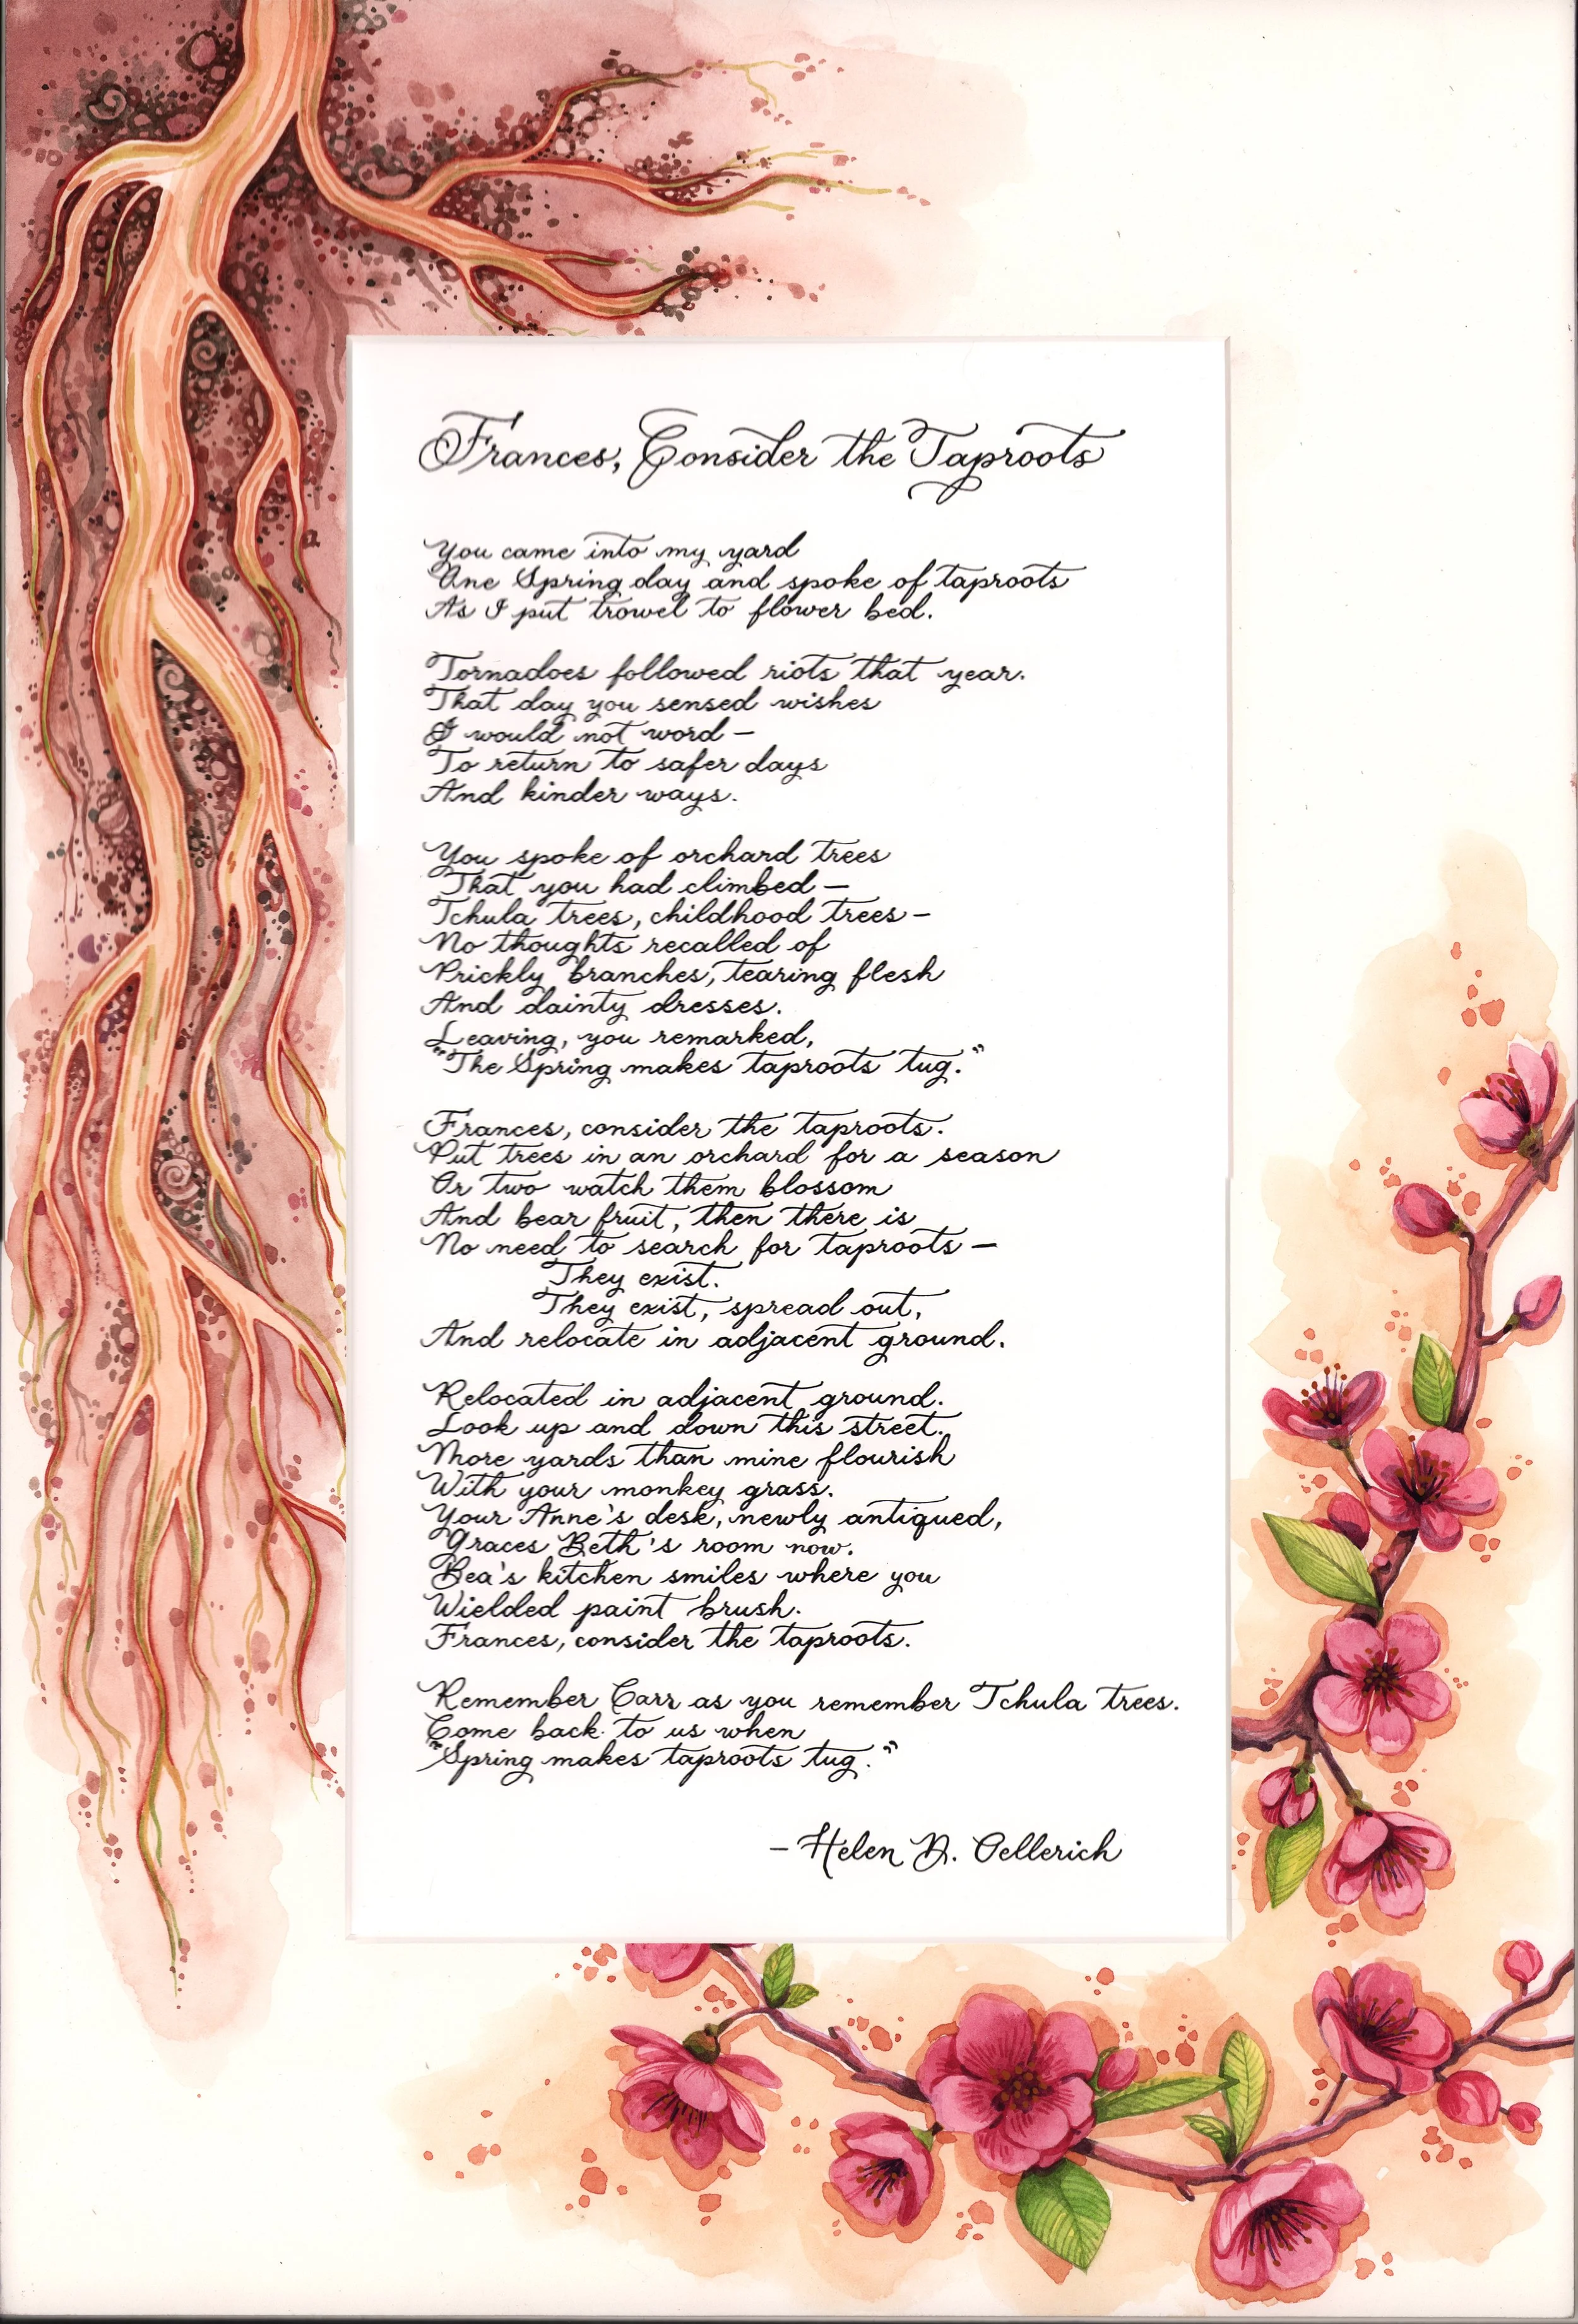 Frances, Consider the Taproots
You came into my yard
One Spring day and spoke of taproots
As I put trowel to flower bed.
Tornadoes followed riots that year.
That day you sensed wishes
I would not word –
To return to safer days
And kinder ways.
You spoke of orchard trees
That you had climbed –
Tchula trees, childhood trees –
No thoughts recalled of
Prickly branches, tearing flesh
And dainty dresses.
Leaving, you remarked,
"The Spring makes taproots tug."
Frances, consider the taproots.
Put trees in an orchard for a season
Or two watch them blossom
And bear fruit, then there is
No need to search for taproots –
They exist.
They exist, spread out,
And relocate in adjacent ground.
Relocated in adjacent ground.
Look up and down this street.
More yards than mine flourish
With your monkey grass.
Your Anne's desk, newly antiqued,
Graces Beth's room now.
Bea's kitchen smiles where you
Wielded paint brush.
Frances, consider the taproots.
Remember Carr as you remember Tchula trees.
Come back to us when
"Spring makes taproots tug."
– Helen D. Oellerich